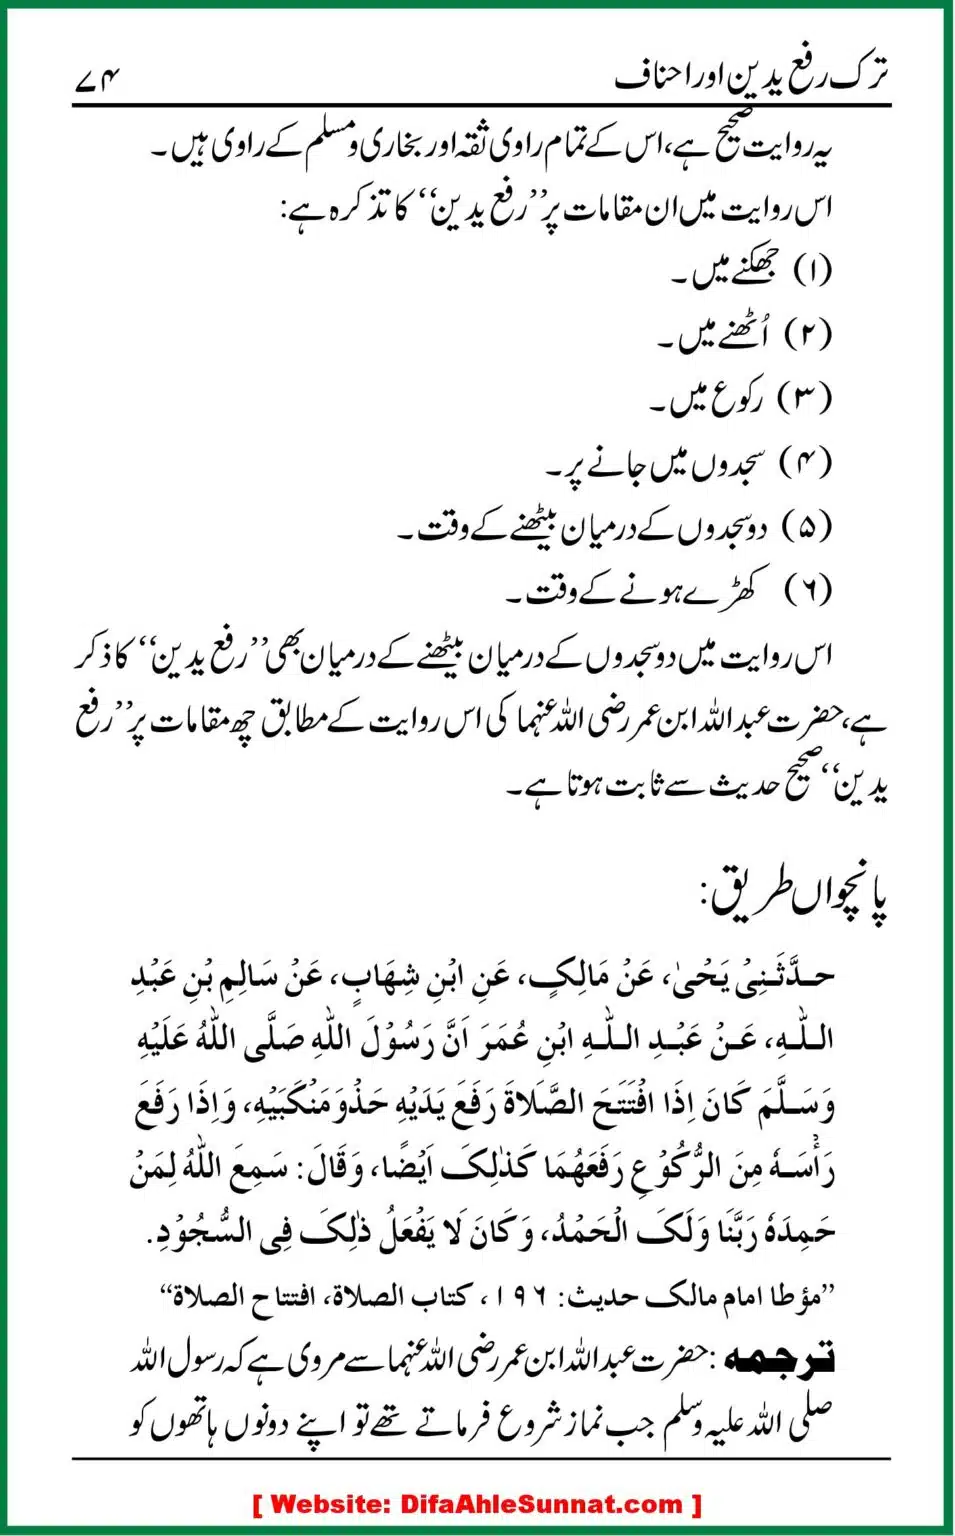 ترک رفع یدین اور احناف
۷۴
یہ روایت صحیح ہے، اس کے تمام راوی ثقہ اور بخاری و مسلم کے راوی ہیں۔
اس روایت میں ان مقامات پر ’’رفع یدین‘‘ کا تذکرہ ہے:
(۱) جھکنے میں۔
(۲) اُٹھنے میں۔
(۳) رکوع میں۔
(۴) سجدوں میں جانے پر۔
(۵) دو سجدوں کے درمیان بیٹھنے کے وقت۔
(۶) کھڑے ہونے کے وقت۔
اس روایت میں دو سجدوں کے درمیان بیٹھنے کے درمیان بھی ’’رفع یدین‘‘ کا ذکر
ہے، حضرت عبد اللہ ابن عمر رضی اللہ عنہما کی اس روایت کے مطابق چھ مقامات پر ’’رفع
یدین‘‘ صحیح حدیث سے ثابت ہوتا ہے۔
پانچواں طریق:
حَدَّثَنِیْ یَحْیٰ، عَنْ مَالِکٍ، عَنِ ابْنِ شِهَابٍ، عَنْ سَالِمِ بْنِ عَبْدِ
اللّٰهِ، عَنْ عَبْدِ اللّٰهِ ابْنِ عُمَرَ اَنَّ رَسُوْلَ اللّٰهِ صَلَّی اللّٰهُ عَلَیْهِ
وَسَلَّمَ کَانَ اِذَا افْتَتَحَ الصَّلَاةَ رَفَعَ یَدَیْهِ حَذْوَ مَنْکَبَیْهِ، وَاِذَا رَفَعَ
رَأْسَهٗ مِنَ الرُّکُوْعِ رَفَعَهُمَا کَذٰلِکَ اَیْضًا، وَقَالَ: سَمِعَ اللّٰهُ لِمَنْ
حَمِدَهٗ رَبَّنَا وَلَکَ الْحَمْدُ، وَکَانَ لَا یَفْعَلُ ذٰلِکَ فِی السُّجُوْدِ.
’’مؤطا امام مالک حدیث: ۱۹۶، کتاب الصلاة، افتتاح الصلاة‘‘
ترجمہ: حضرت عبد اللہ ابن عمر رضی اللہ عنہما سے مروی ہے کہ رسول اللہ
صلی اللہ علیہ وسلم جب نماز شروع فرماتے تھے تو اپنے دونوں ہاتھوں کو
[ Website: DifaAhleSunnat.com ]